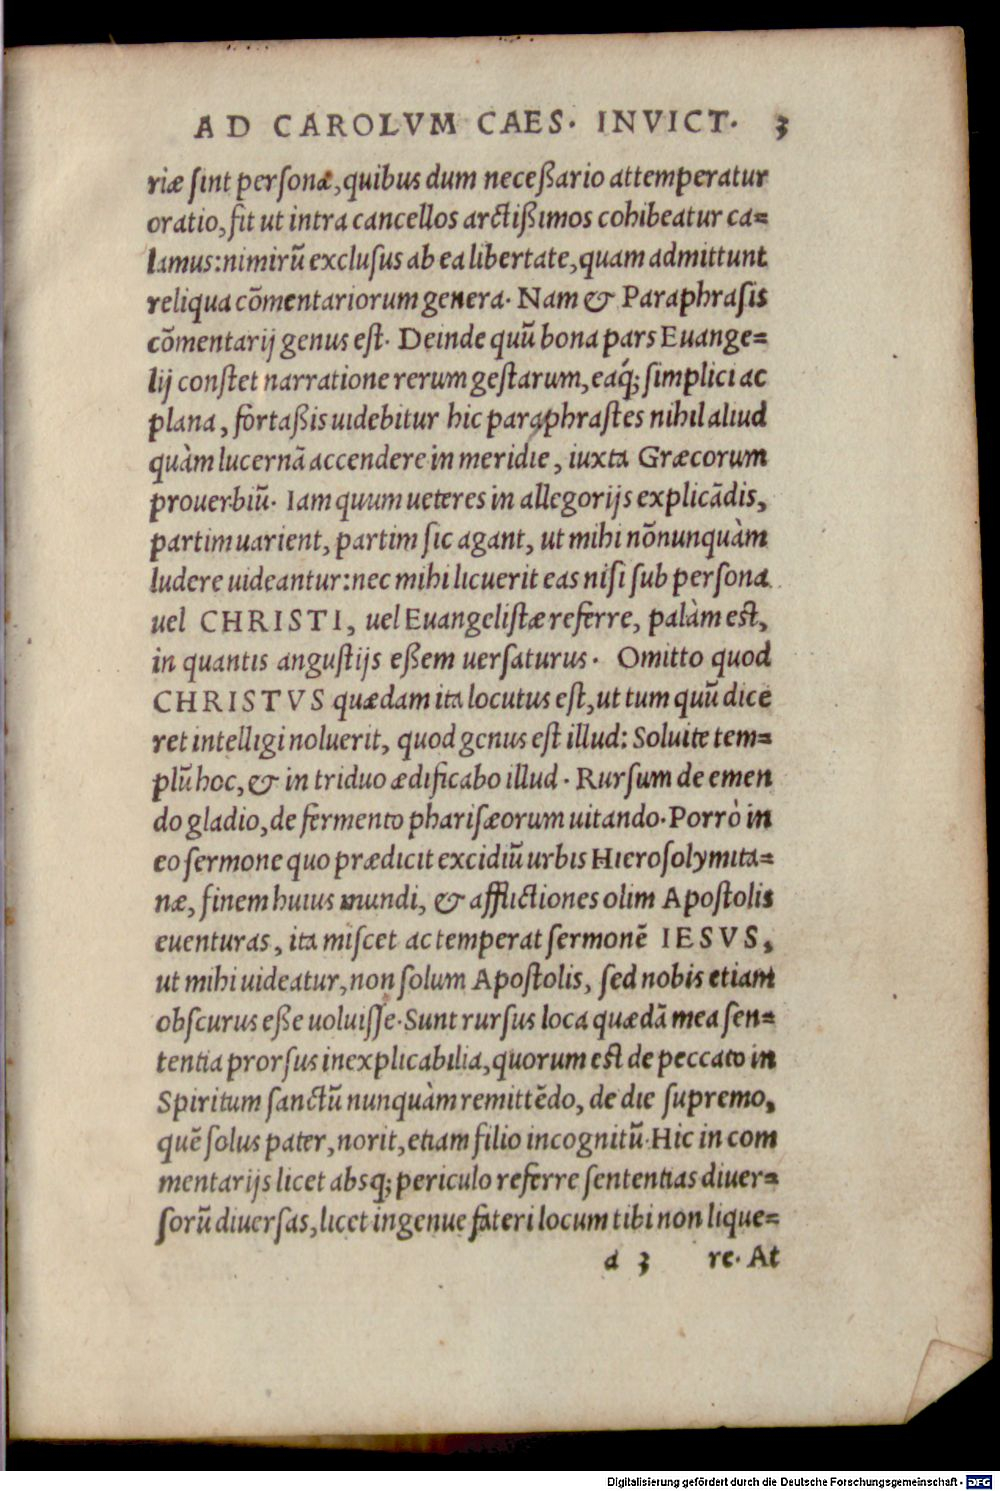 AD CAROLVM CAES. INVICT. 3
riæ sint personæ, quibus dum neceßario attemperatur
oratio, fit ut intra cancellos arctißimos cohibeatur ca=
lamus: nimirũ exclusus ab ea libertate, quam admittunt
reliqua cõmentariorum genera. Nam & Paraphrasis
cõmentarij genus est. Deinde quũ bona pars Euange=
lij constet narratione rerum gestarum, eaq́; simplici ac
plana, fortaßis uidebitur hic paraphrastes nihil aliud
quàm lucernã accendere in meridie, iuxta Græcorum
prouerbiũ. Iam quum ueteres in allegorijs explicãdis,
partim uarient, partim sic agant, ut mihi nõnunquàm
ludere uideantur: nec mihi licuerit eas nisi sub persona
uel CHRISTI, uel Euangelistæ referre, palàm est,
in quantis angustijs eßem uersaturus. Omitto quod
CHRISTVS quædam ita locutus est, ut tum quũ dice
ret intelligi noluerit, quod genus est illud: Soluite tem=
plũ hoc, & in triduo ædificabo illud. Rursum de emen
do gladio, de fermento pharisæorum uitando. Porrò in
eo sermone quo prædicit excidiũ urbis Hierosolymita=
næ, finem huius mundi, & afflictiones olim Apostolis
euenturas, ita miscet ac temperat sermonẽ IESVS,
ut mihi uideatur, non solum Apostolis, sed nobis etiam
obscurus eße uoluisse. Sunt rursus loca quædã mea sen=
tentia prorsus inexplicabilia, quorum est de peccato in
Spiritum sanctũ nunquàm remittẽdo, de die supremo,
quẽ solus pater, norit, etiam filio incognitũ. Hic in com
mentarijs licet absq; periculo referre sententias diuer=
sorũ diuersas, licet ingenue fateri locum tibi non lique=
a 3 re. At
Digitalisierung gefördert durch die Deutsche Forschungsgemeinschaft - DFG